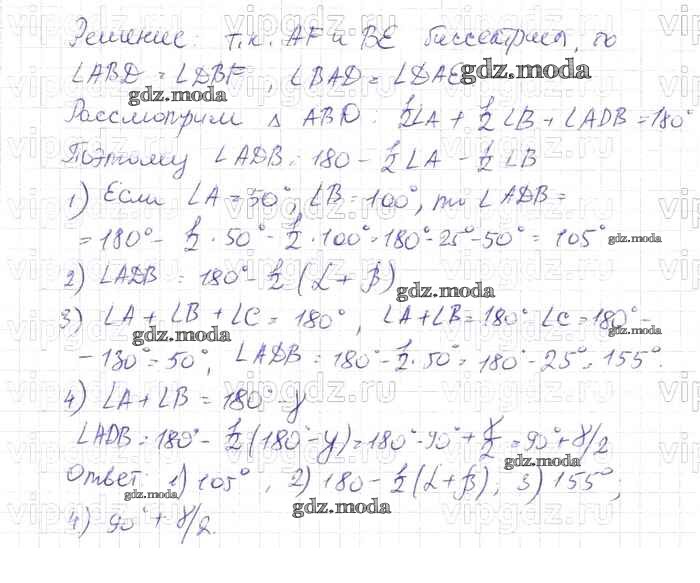 Решение: т.к. AF и BE биссектрисы, то
∠ABD = ∠DBF, ∠BAD = ∠DAE
gdz.moda
gdz.moda
Рассмотрим △ ABD: ½∠A + ½∠B + ∠ADB = 180°
Поэтому ∠ADB = 180 - ½∠A - ½∠B
1) Если ∠A = 50°, ∠B = 100°, то ∠ADB =
= 180° - ½ · 50° - ½ · 100° = 180° - 25° - 50° = 105°
gdz.moda
2) ∠ADB = 180° - ½(α + β)
gdz.moda
3) ∠A + ∠B + ∠C = 180°, ∠A + ∠B = 180° ∠C = 180° -
gdz.moda
gdz.moda
- 130° = 50°, ∠ADB = 180° - ½ · 50° = 180° - 25° = 155°.
4) ∠A + ∠B = 180° - γ
∠ADB = 180° - ½(180° - γ) = 180° - 90° + γ/2 = 90° + γ/2
gdz.moda
Ответ: 1) 105°, 2) 180 - ½(α + β), 3) 155°;
gdz.moda
gdz.moda
4) 90° + γ/2.